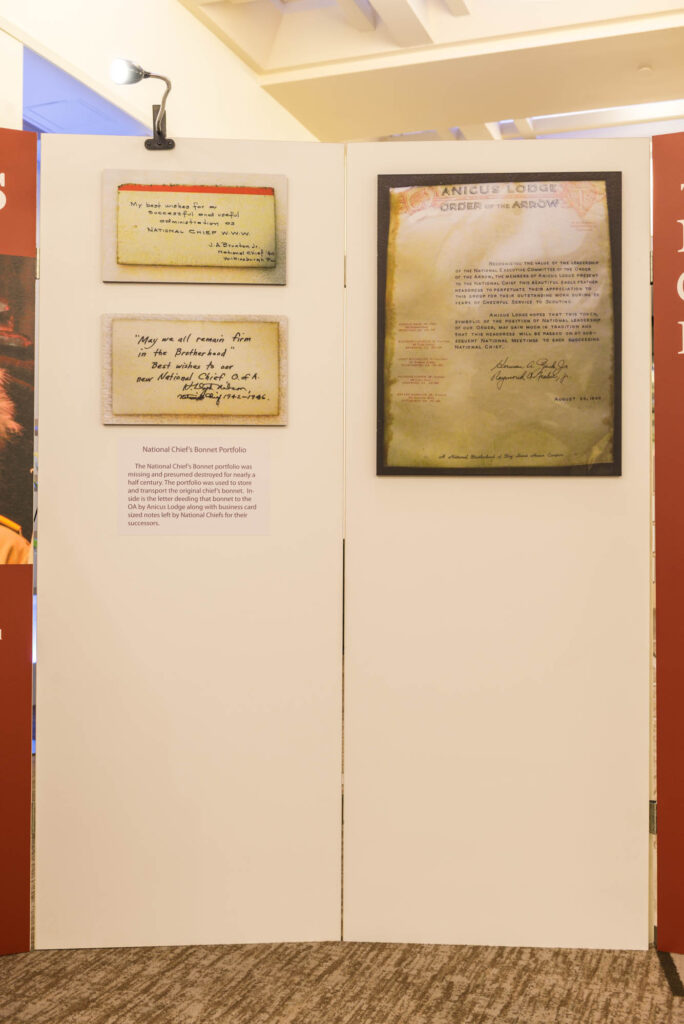 My best wishes for a
successful and useful
administration as
NATIONAL CHIEF W.W.W.
J.A. Brunton Jr.
National Chief
Wilkinsburg Pa
"May we all remain firm
in the Brotherhood"
Best wishes to our
new National Chief O. of A.
National Chief 1942-1946.
National Chief's Bonnet Portfolio
The National Chief's Bonnet portfolio was
missing and presumed destroyed for nearly a
half century. The portfolio was used to store
and transport the original chief's bonnet. In-
side is the letter deeding that bonnet to the
OA by Anicus Lodge along with business card
sized notes left by National Chiefs for their
successors.
ANICUS LODGE
ORDER OF THE ARROW
RECOGNIZING THE VALUE OF THE LEADERSHIP
OF THE NATIONAL EXECUTIVE COMMITTEE OF THE ORDER
OF THE ARROW, THE MEMBERS OF ANICUS LODGE PRESENT
TO THE NATIONAL CHIEF THIS BEAUTIFUL EAGLE FEATHER
HEADDRESS TO PERPETUATE THEIR APPRECIATION TO
THIS GROUP FOR THEIR OUTSTANDING WORK DURING 25
YEARS OF CHEERFUL SERVICE TO SCOUTING.
ANICUS LODGE HOPES THAT THIS TOKEN,
SYMBOLIC OF THE POSITION OF NATIONAL LEADERSHIP
OF OUR ORDER, MAY GAIN MUCH IN TRADITION AND
THAT THIS HEADDRESS WILL BE PASSED ON AT SUB-
SEQUENT NATIONAL MEETINGS TO EACH SUCCEEDING
NATIONAL CHIEF.
AUGUST 1940
A National Brotherhood of Boy Scout Honor Campers